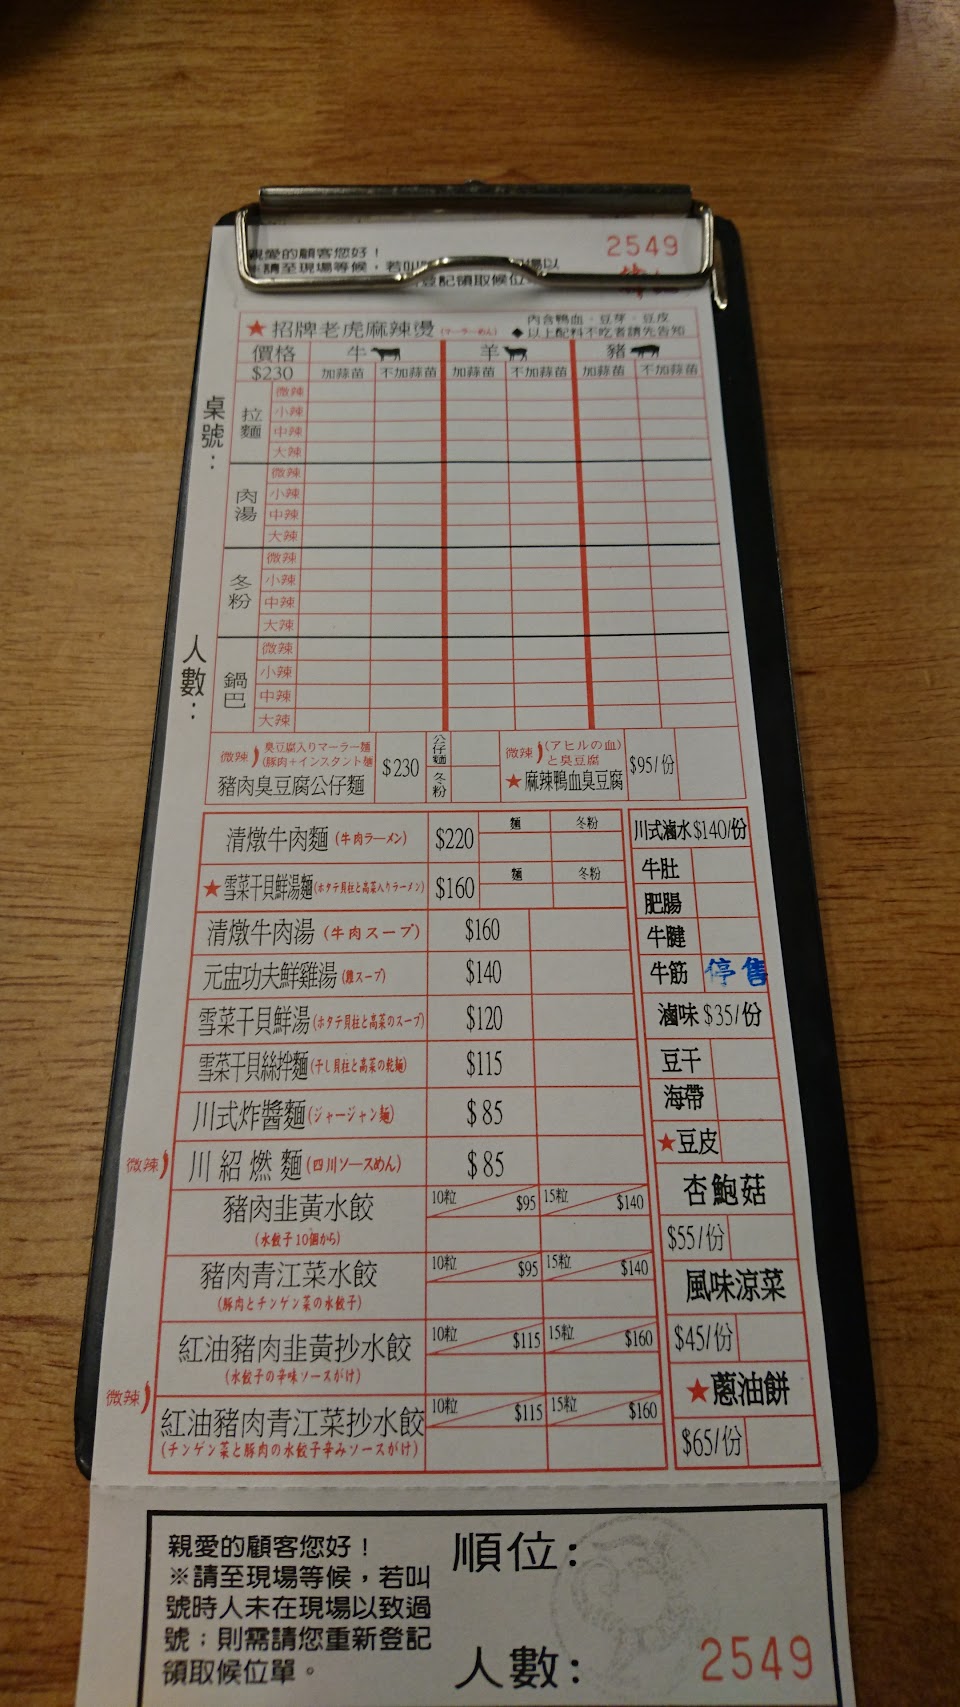 親愛的顧客您好！
2549
※請至現場等候，若叫
場以
登記領取候位
★招牌老虎麻辣燙(マーラーめん)
內含鴨血、豆芽、豆皮
◆以上配料不吃者請先告知
價格 牛 羊 豬
$230 加蒜苗 不加蒜苗 加蒜苗 不加蒜苗 加蒜苗 不加蒜苗
桌號：
拉麵
微辣
小辣
中辣
大辣
肉湯
微辣
小辣
中辣
大辣
冬粉
微辣
小辣
中辣
大辣
人數：
鍋巴
微辣
小辣
中辣
大辣
微辣 臭豆腐入りマーラー麵
(豚肉+インスタント麵
豬肉臭豆腐公仔麵
$230
公仔麵
冬粉
微辣 (アヒルの血)
と臭豆腐
★麻辣鴨血臭豆腐
$95/份
清燉牛肉麵(牛肉ラーメン) $220 麵 冬粉
★雪菜干貝鮮湯麵(ホタテ貝柱と高菜入りラーメン) $160 麵 冬粉
清燉牛肉湯(牛肉スープ) $160
元盅功夫鮮雞湯(雞スープ) $140
雪菜干貝鮮湯(ホタテ貝柱と高菜のスープ) $120
雪菜干貝絲拌麵(干し貝柱と高菜の乾麵) $115
川式炸醬麵(ジャージャン麵) $85
微辣 川紹燃麵(四川ソースめん) $85
豬肉韭黃水餃 10粒 $95 15粒 $140
(水餃子10個から)
豬肉青江菜水餃 10粒 $95 15粒 $140
(豚肉とチンゲン菜の水餃子)
紅油豬肉韭黃抄水餃 10粒 $115 15粒 $160
(水餃子の辛味ソースがけ)
微辣
紅油豬肉青江菜抄水餃 10粒 $115 15粒 $160
(チンゲン菜と豚肉の水餃子辛みソースがけ)
川式滷水$140/份
牛肚
肥腸
牛腱
牛筋 停售
滷味$35/份
豆干
海帶
★豆皮
杏鮑菇
$55/份
風味涼菜
$45/份
★蔥油餅
$65/份
親愛的顧客您好！
※請至現場等候，若叫
號時人未在現場以致過
號；則需請您重新登記
領取候位單。
順位：
人數：
2549